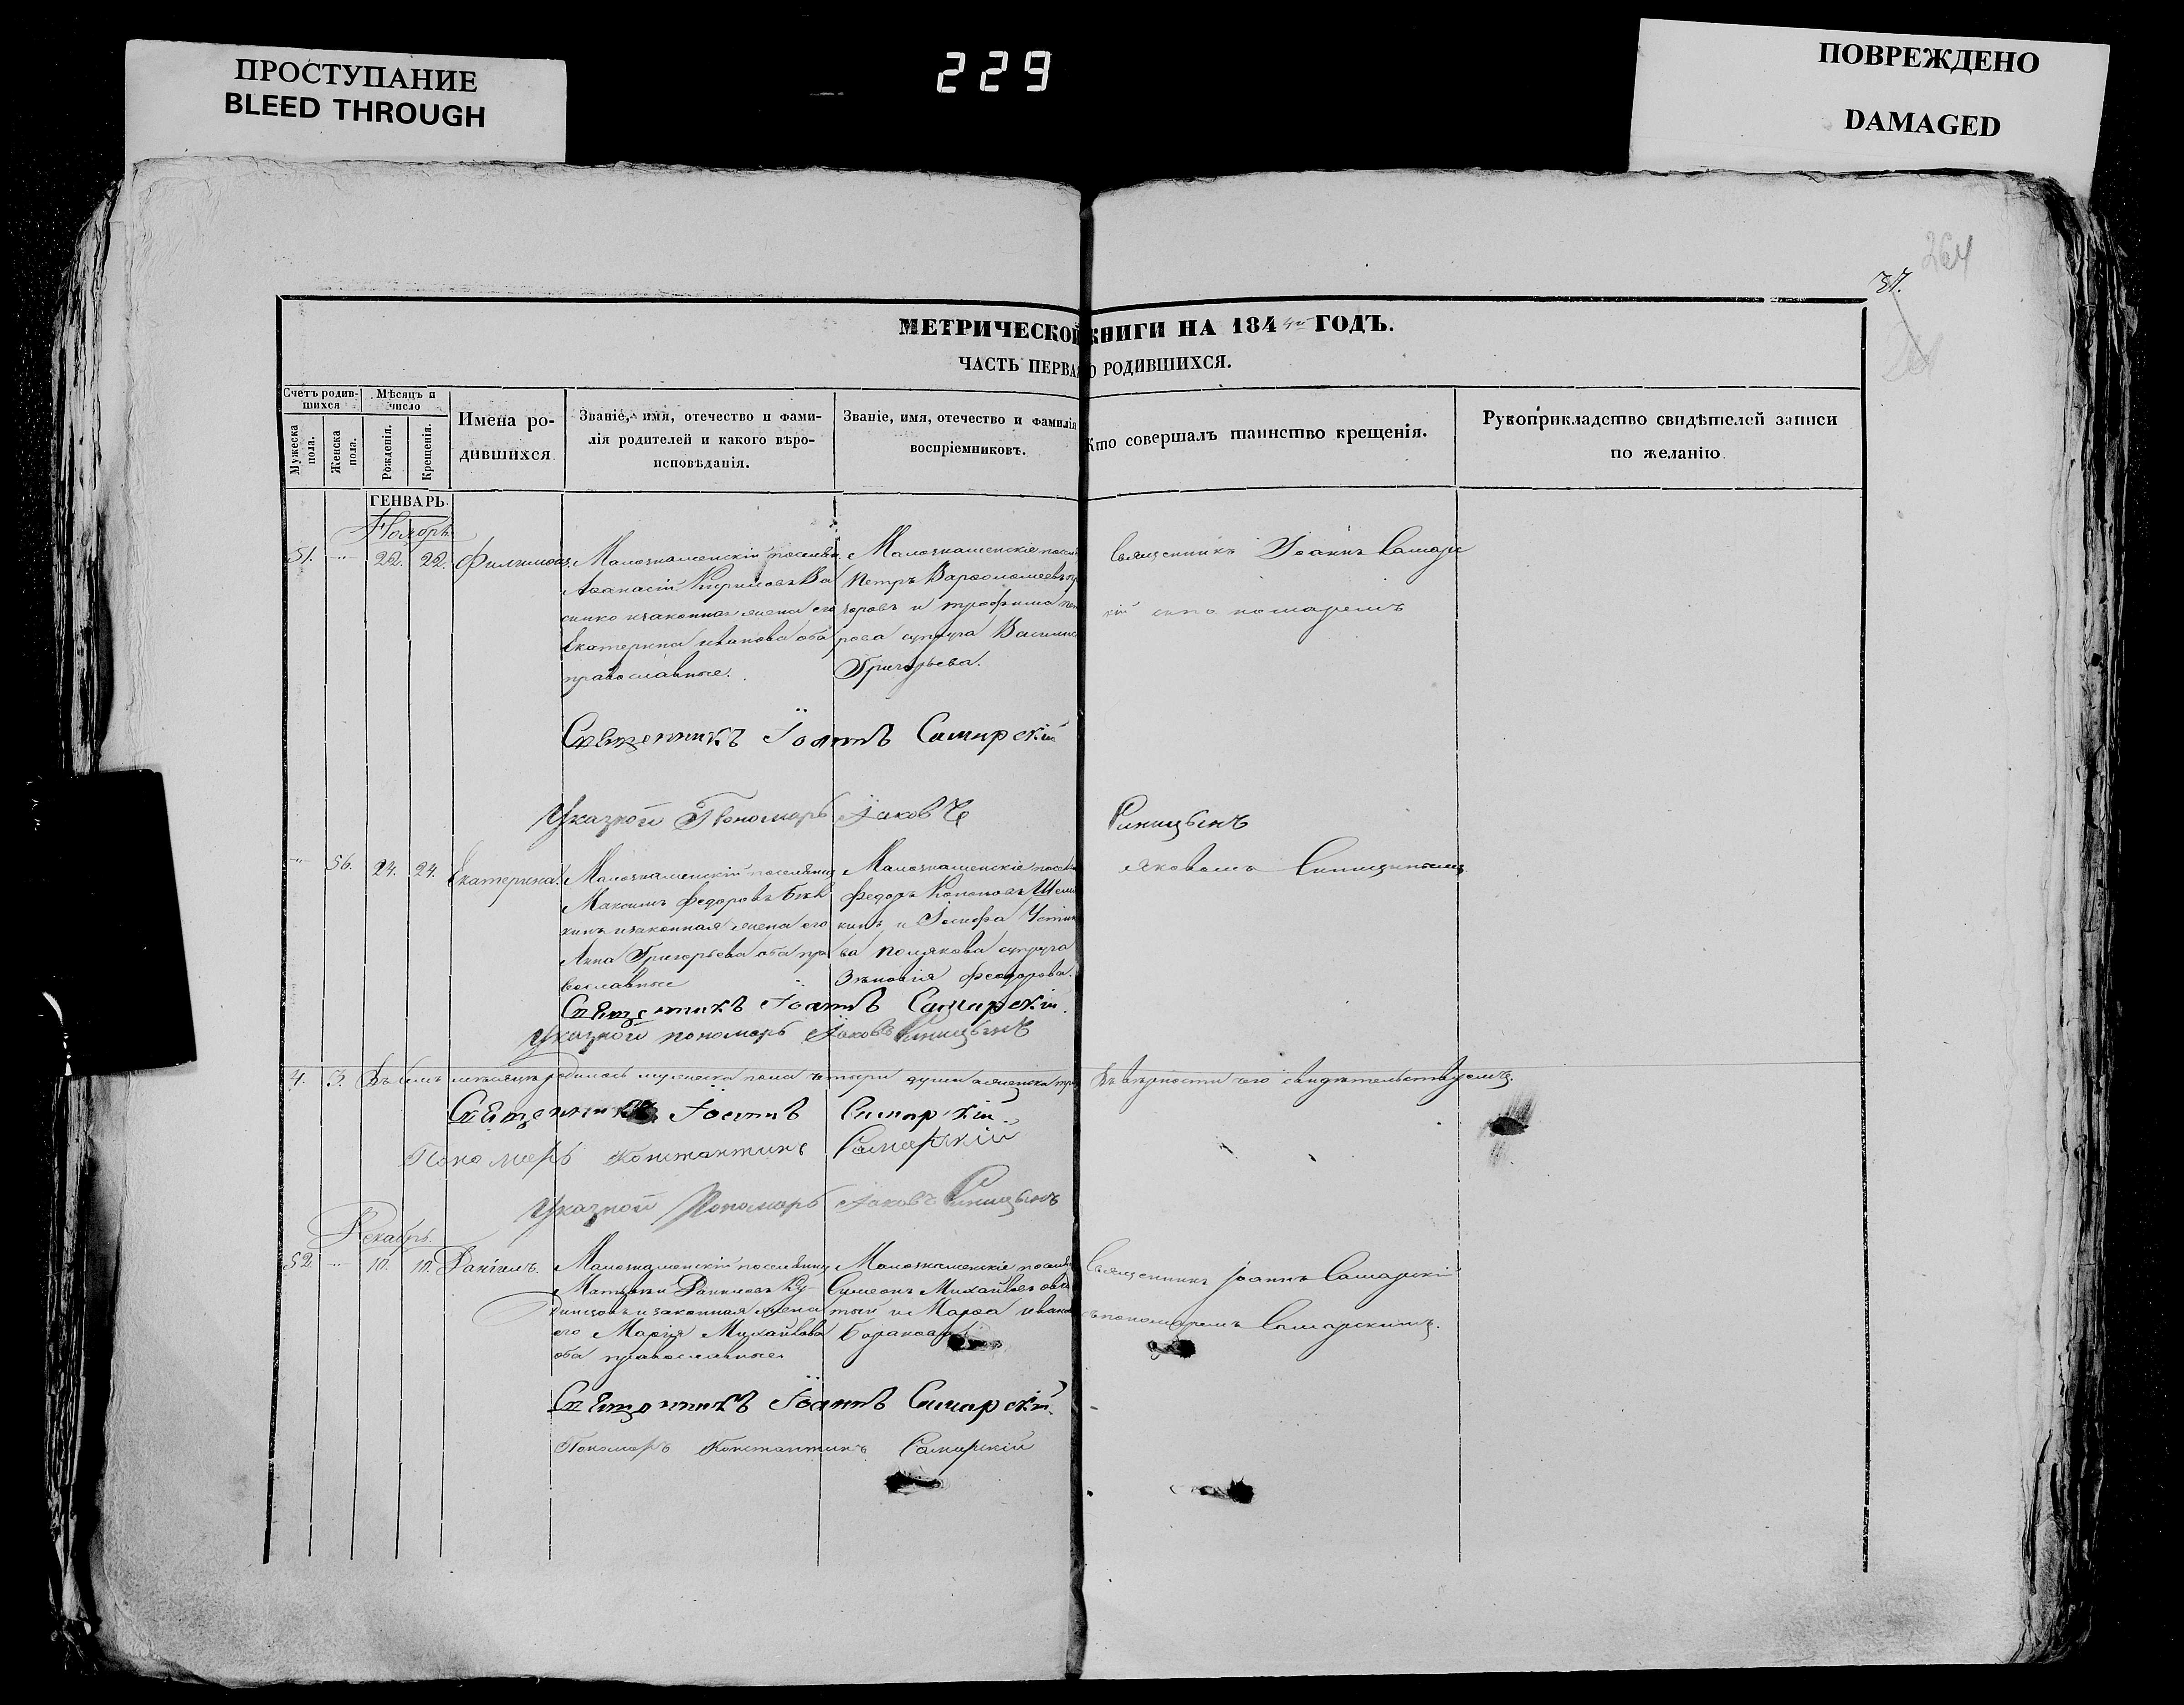 ПРОСТУПАНИЕ
BLEED THROUGH
229
ПОВРЕЖДЕНО
DAMAGED
264
37.
МЕТРИЧЕСКОЙ КНИГИ НА 184 4й ГОДЪ.
ЧАСТЬ ПЕРВАЯ О РОДИВШИХСЯ.
Счетъ родив-
шихся
Мужеска пола.
Женска пола.
Мѣсяцъ и
число
Рожденія.
Крещенія.
Имена ро-
дившихся
Званіе, имя, отечество и фами-
лія родителей и какого вѣро-
исповѣданія.
Званіе, имя, отечество и фамилія
воспріемниковъ.
Кто совершалъ таинство крещенія.
Рукоприкладство свидѣтелей записи
по желанію
ГЕНВАРЬ.
Ноябрь
51. 22. 22.
Малознаменскій
Аѳанасій Кириловъ Ва
сенко и законная жена его
Екатерина иванова оба
православные.
Малознаменскіе
Петръ Варѳоломеевъ
и трофима
рова супруга
Григорьева.
Священникъ Іоаннъ Самарс
кій съ пономаремъ
Священникъ Іоаннъ Самарскій
Указной Пономарь Іаковъ Синицынъ
56. 24. 24. Екатерина.
Малознаменскій поселянинъ
Максимъ Федоровъ
кинъ и законная жена его
Анна Григорьева оба пра
вославные
Малознаменскіе
Федоръ Кононовъ
кинъ и Іосифа
ва полякова супруга
Зѣновія Феодорова.
Яковомъ Синицинымъ
Священникъ Іоаннъ Самарскій.
Указной пономарь Іаковъ Синицынъ
4. 3. Въ семъ мѣсяцѣ родилось мужеска пола четыри души а женска три
Въ вѣрности чего свидѣтельствуемъ.
Священникъ Іоаннъ Самарскій.
Пономарь Константинъ Самарскій
Указной Пономарь Іаковъ Синицынъ
Декабрь.
52. 10. 10. Даніилъ.
Малознаменскій поселянинъ
Матѳей Даниловъ Ку-
динцовъ и законная жена
его Марія Михайлова
оба православные
Малознаменскіе
Симеонъ Михайловъ
и Марѳа иванова
Священникъ Іоаннъ Самарскій
съ пономаремъ Самарскимъ.
Священникъ Іоаннъ Самарскій.
Пономарь Константинъ Самарскій